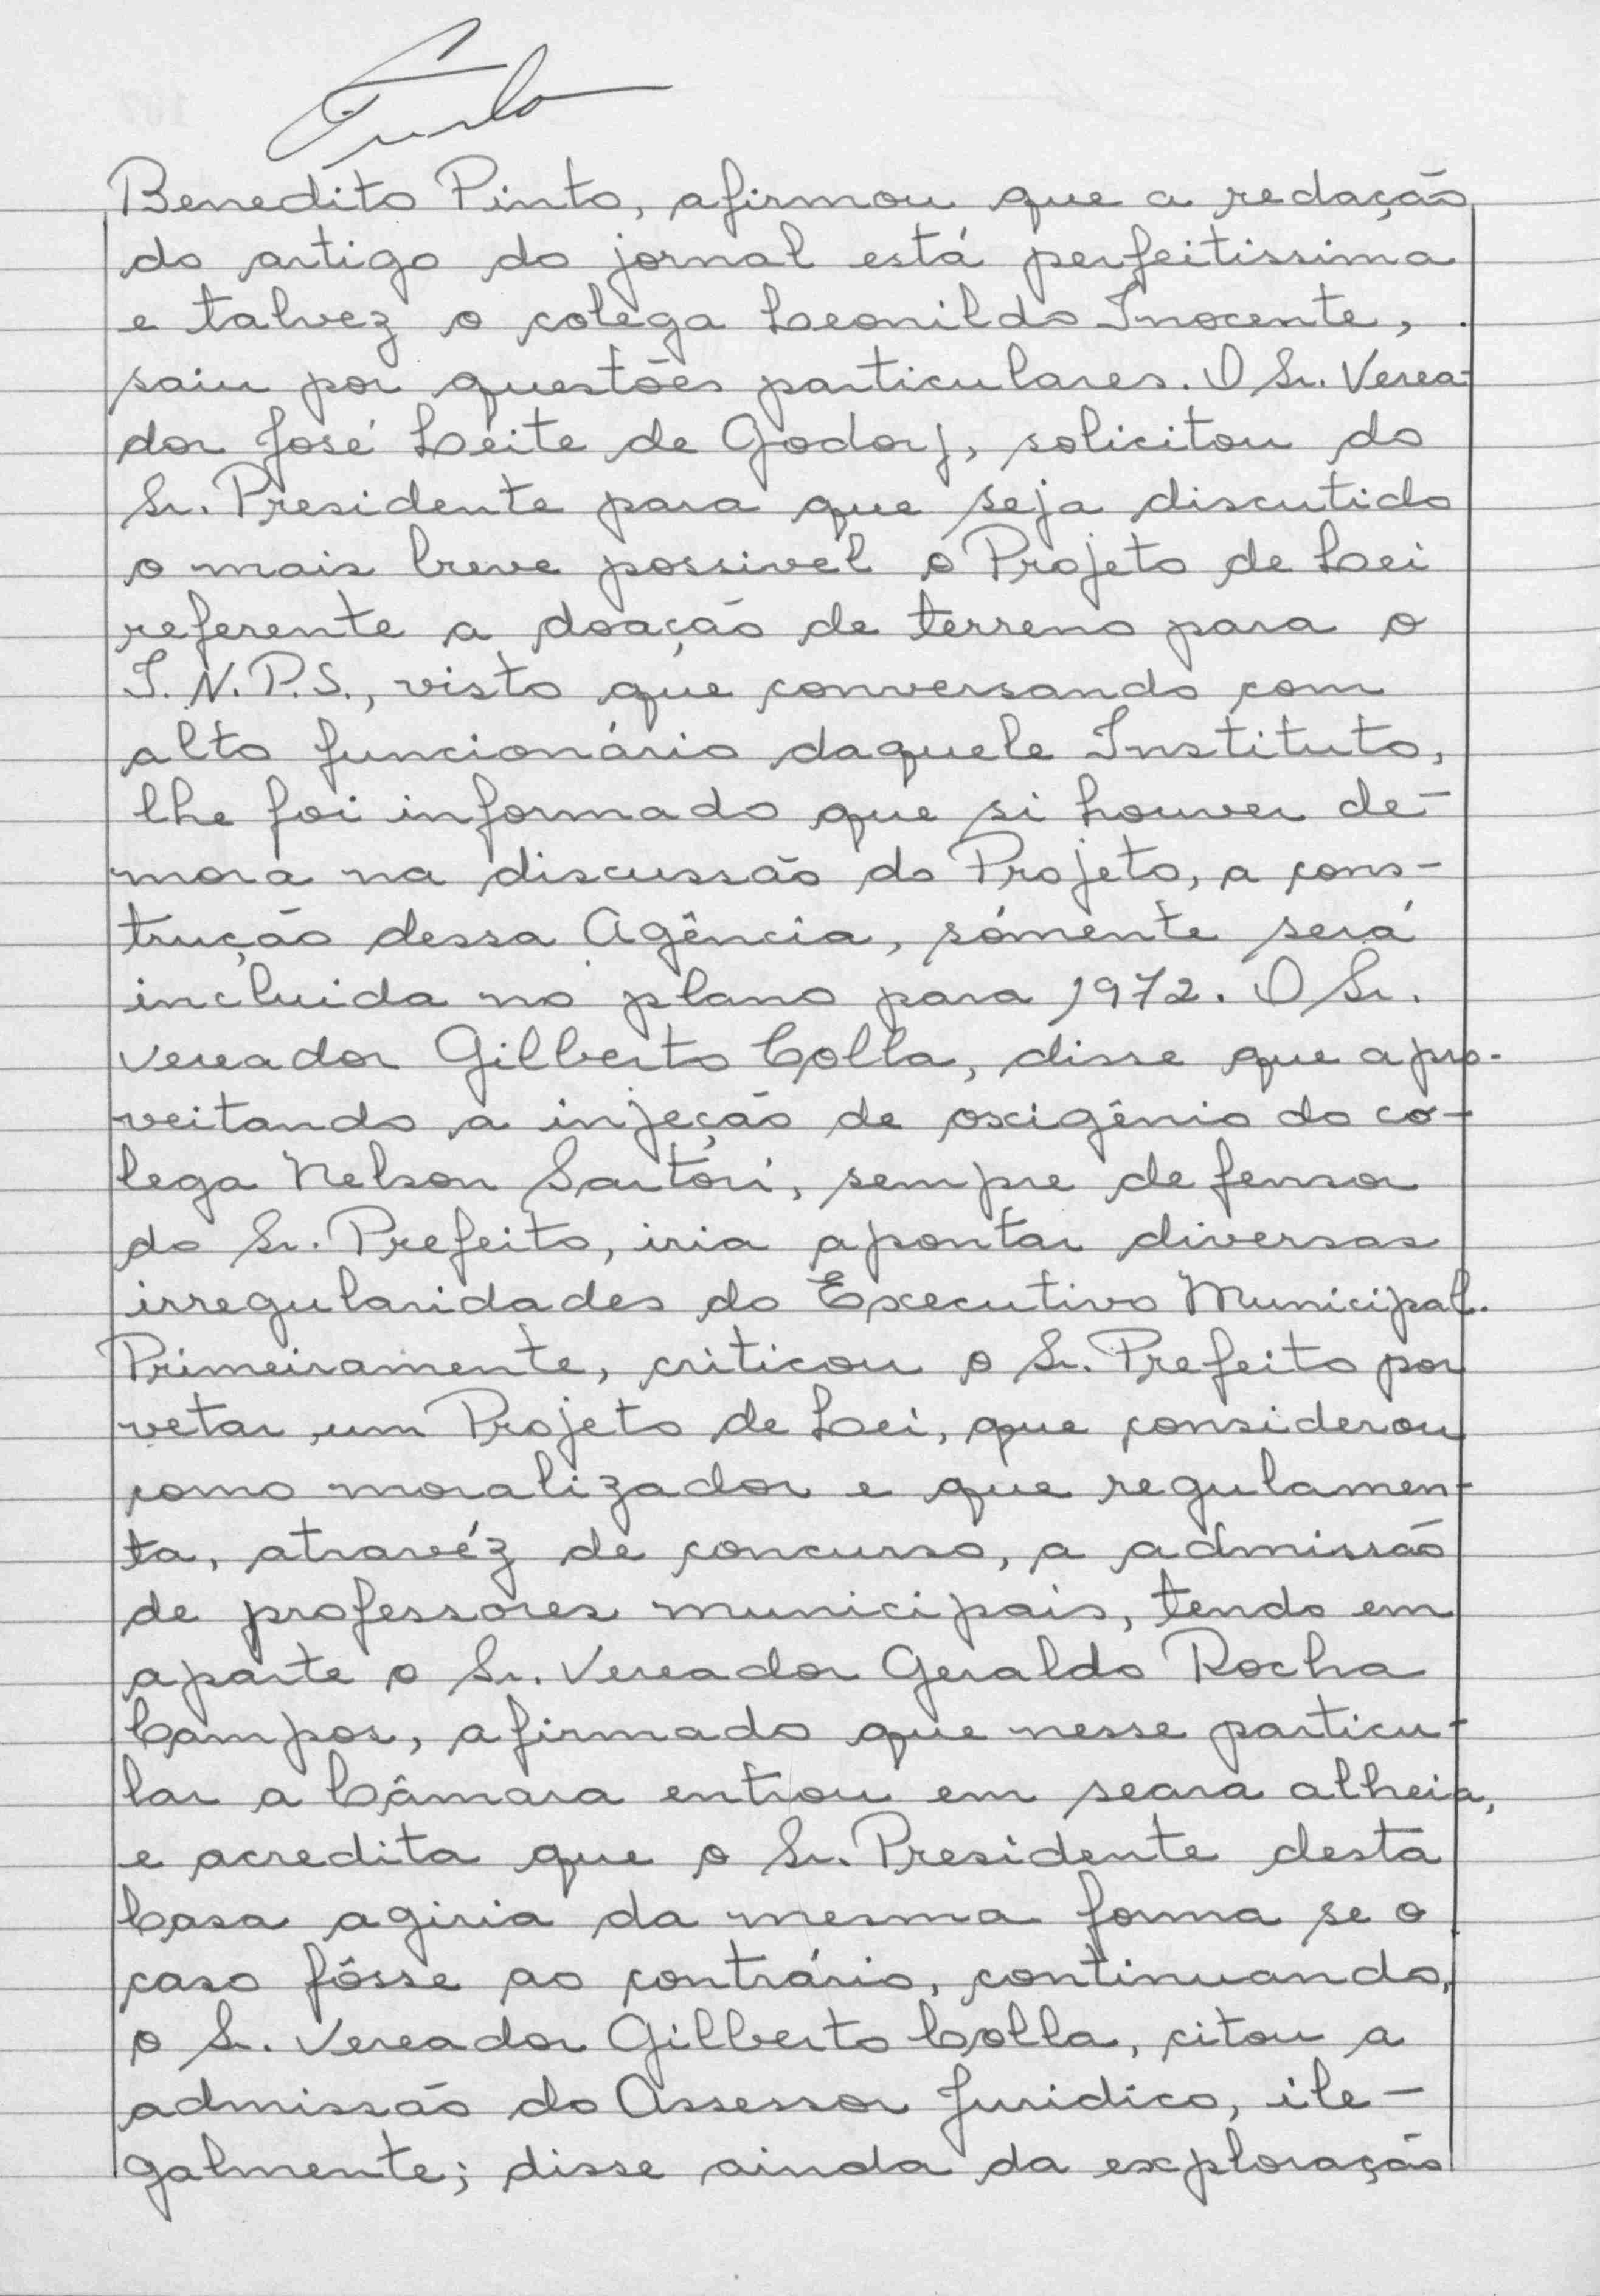 Benedito Pinto, afirmou que a redação
do artigo do jornal está perfeitissima
e talvez o colega Leonildo Inocente,
saiu por questões particulares. O Sr. Verea-
dor José Leite de Godoy, solicitou do
Sr. Presidente para que seja discutido
o mais breve possivel o Projeto de Lei
referente a doação de terreno para o
I.N.P.S., visto que conversando com
alto funcionário daquele Instituto,
lhe foi informado que si houver de-
mora na discussão do Projeto, a cons-
trução dessa Agência, sómente será
incluida no plano para 1972. O Sr.
Vereador Gilberto Colla, disse que apro-
veitando a injeção de oxigênio do co-
lega Nelson Sartóri, sempre defensor
do Sr. Prefeito, iria apontar diversas
irregularidades do Executivo Municipal.
Primeiramente, criticou o Sr. Prefeito por
vetar um Projeto de Lei, que considerou
como moralizador e que regulamen-
ta, atravéz de concurso, a admissão
de professores municipais, tendo em
aparte o Sr. Vereador Geraldo Rocha
Campos, afirmado que nesse particu-
lar a Câmara entrou em seara alheia,
e acredita que o Sr. Presidente desta
Casa agiria da mesma forma se o
caso fôsse ao contrário, continuando,
o Sr. Vereador Gilberto Colla, citou a
admissão do Assessor Juridico, ile-
galmente; disse ainda da exploração